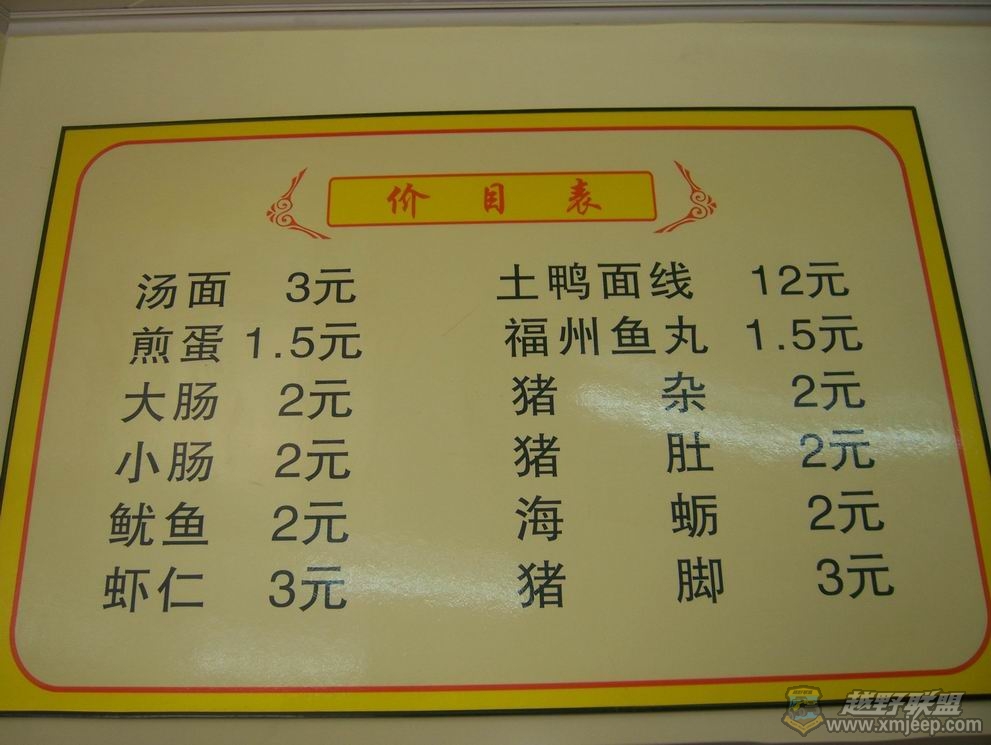 价目表
汤面 3元
煎蛋 1.5元
大肠 2元
小肠 2元
鱿鱼 2元
虾仁 3元
土鸭面线 12元
福州鱼丸 1.5元
猪杂 2元
猪肚 2元
海蛎 2元
猪脚 3元
越野联盟
www.xmjeep.com